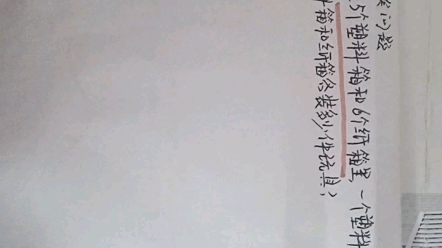 问题
5个塑料箱和6个纸箱里一个塑料
箱和纸箱各装多少件玩具?